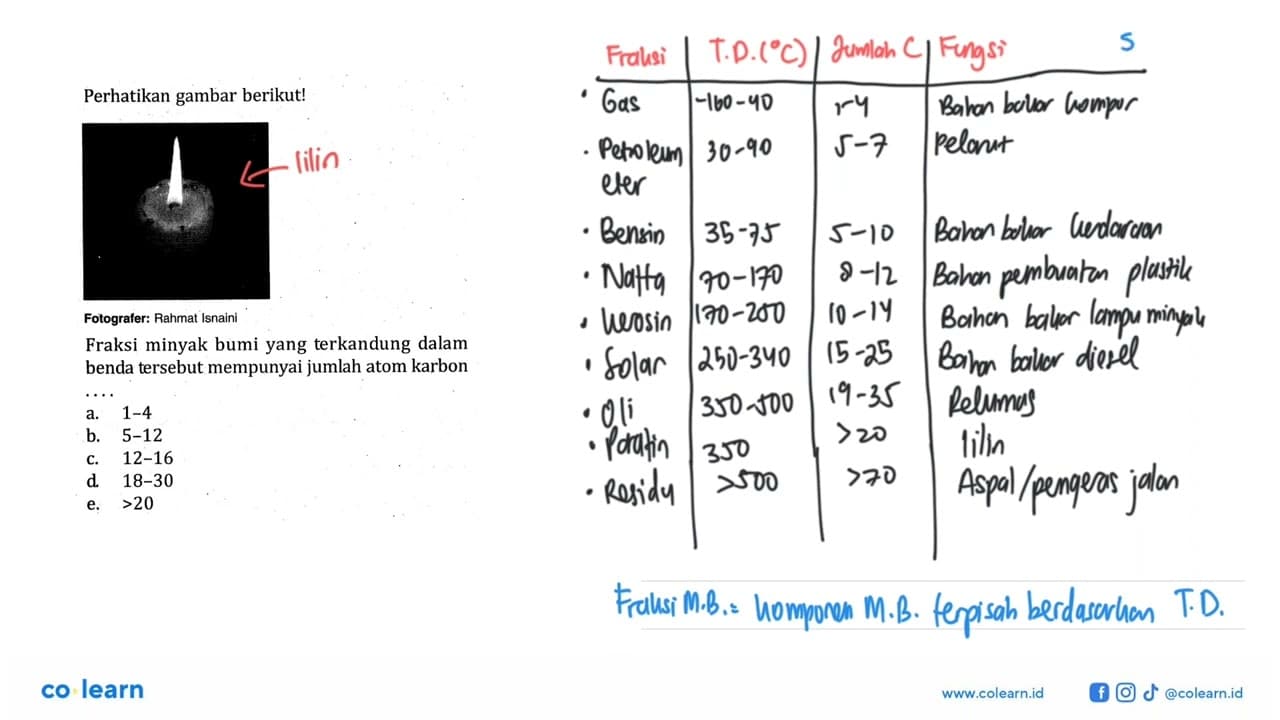 Perhatikan gambar berikut!
lilin
Fotografer: Rahmat Isnaini
Fraksi minyak bumi yang terkandung dalam
benda tersebut mempunyai jumlah atom karbon
....
a. 1–4
b. 5–12
c. 12–16
d. 18–30
e. >20
S
Fraksi T.D.(°C) Jumlah C Fungsi
• Gas -160-40 1-4 Bahan bakar kompor
• Petroleum eter 30-90 5-7 Pelarut
• Bensin 35-75 5-10 Bahan bakar kendaraan
• Nafta 70-170 8-12 Bahan pembuatan plastik
• Kerosin 170-250 10-14 Bahan bakar lampu minyak
• Solar 250-340 15-25 Bahan bakar diesel
• Oli 350-500 19-35 Pelumas
• Parafin 350 >20 lilin
• Residu >500 >70 Aspal/pengeras jalan
Fraksi M.B. = komponen M.B. terpisah berdasarkan T.D.
co learn
www.colearn.id
@colearn.id